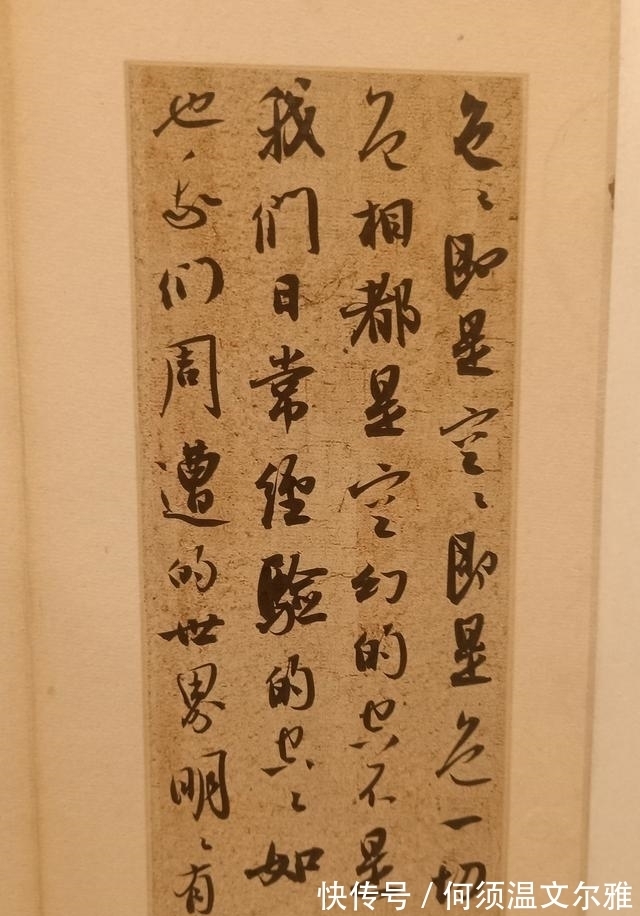 色〻即是空〻即是色一切
色相都是空幻的空不是
我们日常经验的空〻如
也、我们周遭的世界明〻有
快传号/何须温文尔雅